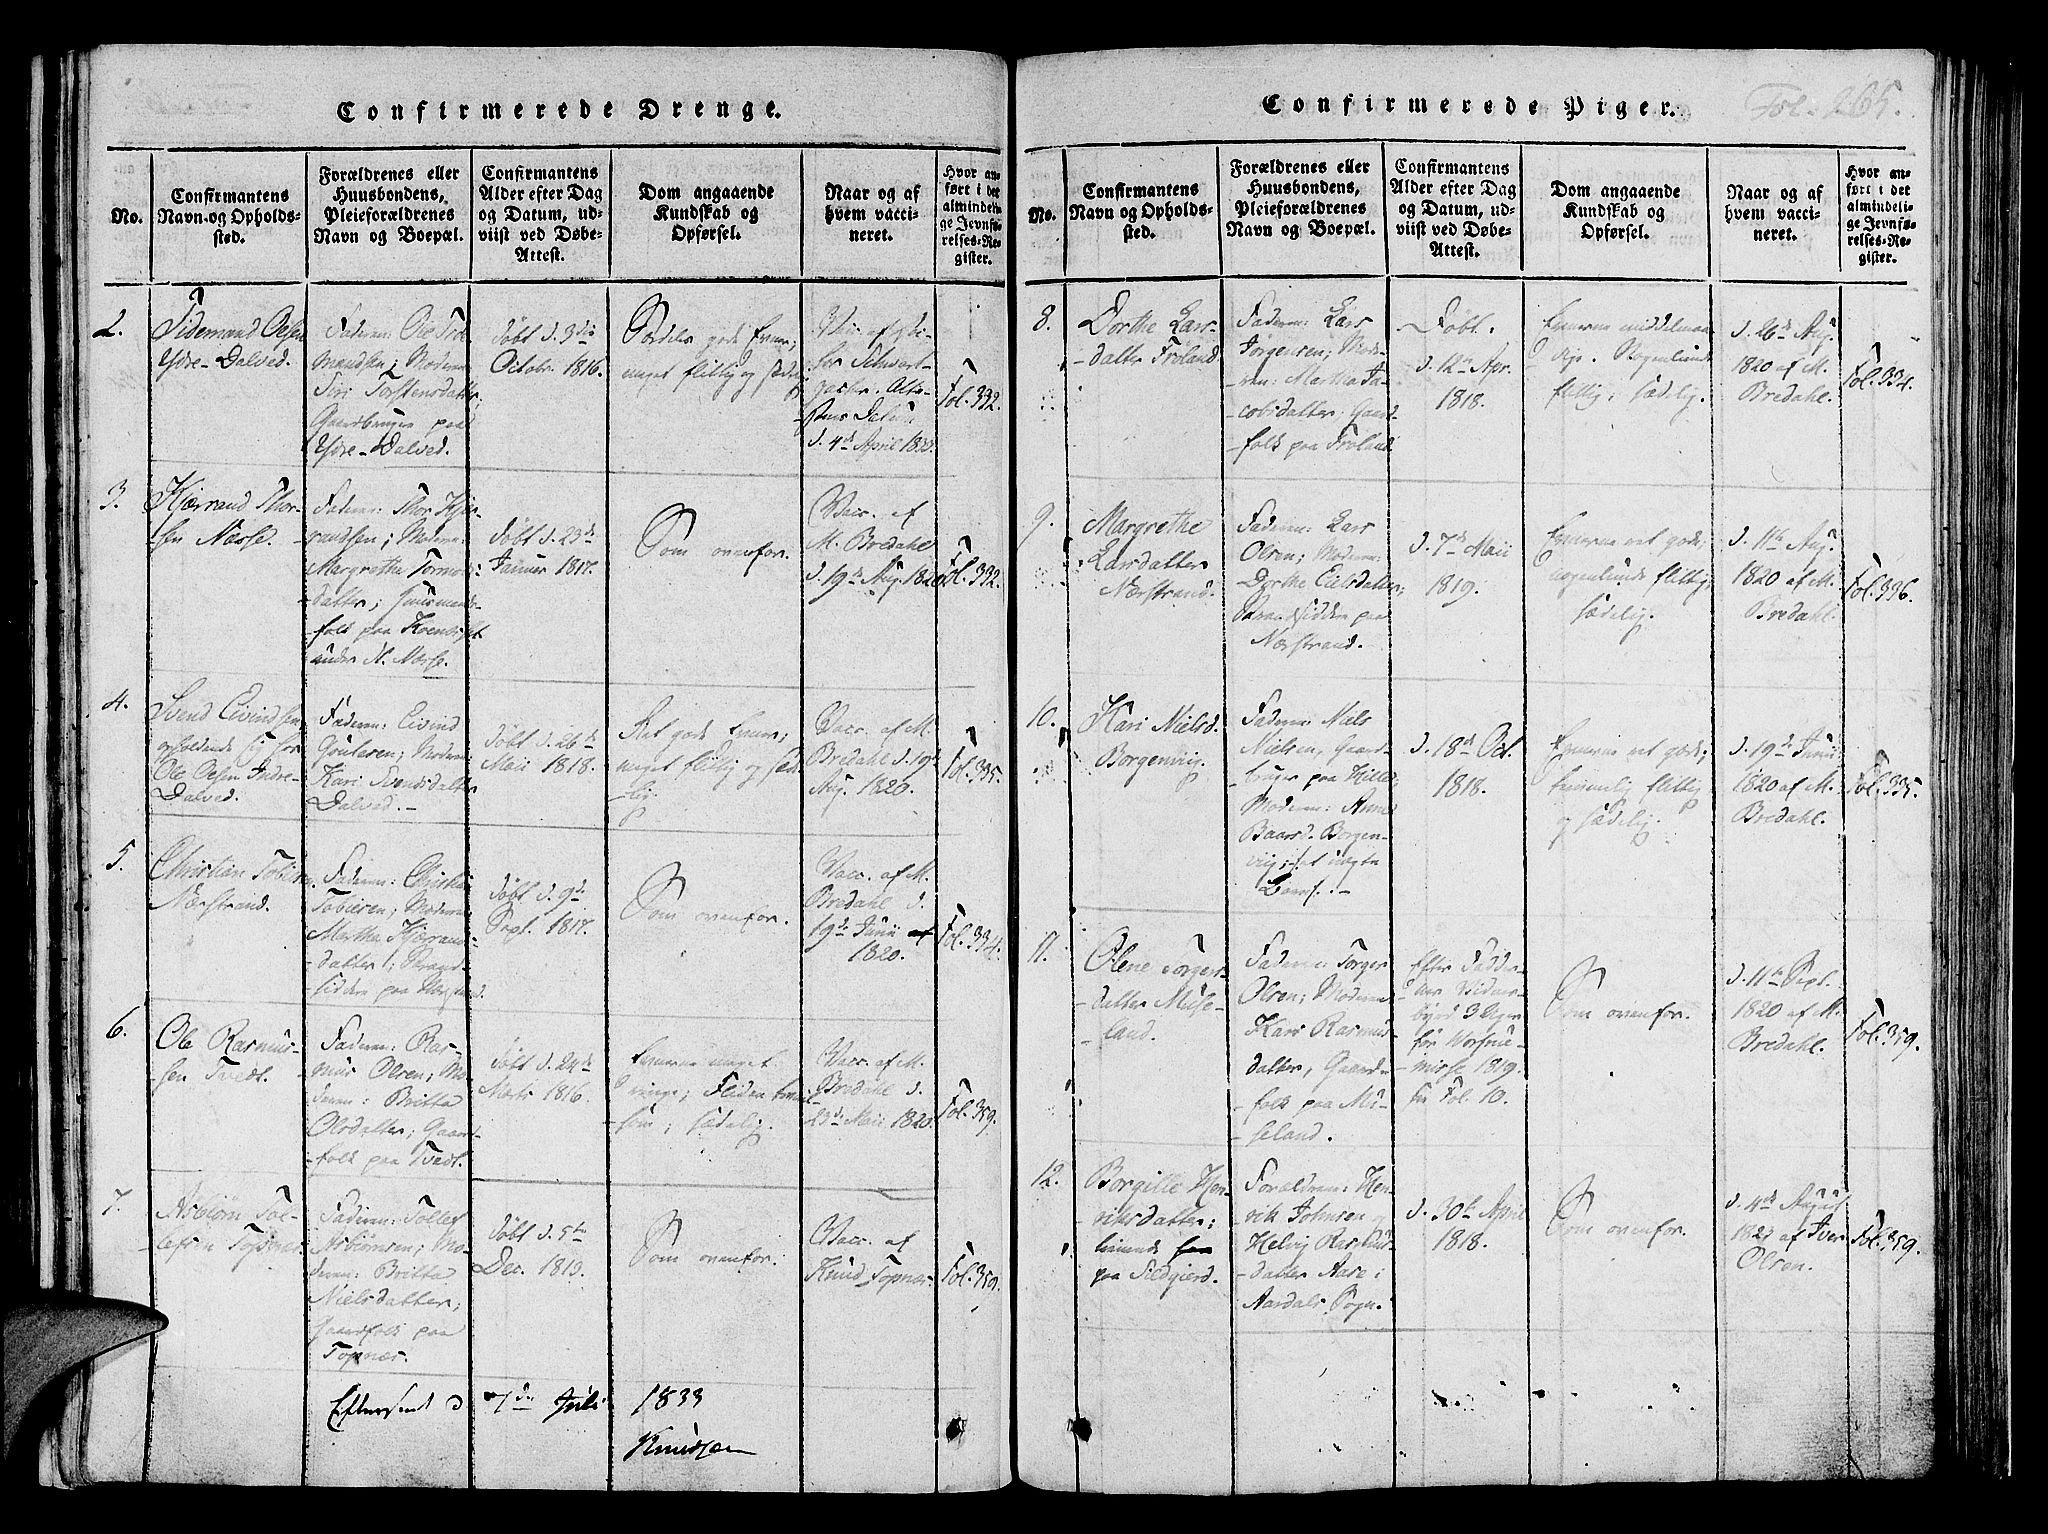 Confirmerede Drenge.
No.
Confirmantens
Navn og Opholds-
sted.
Forældrenes eller
Huusbondens,
Pleieforældrenes
Navn og Boepæl.
Confirmantens
Alder efter Dag
og Datum, ud-
viist ved Døbe-
Attest.
Dom angaaende
Kundskab og
Opførsel.
Naar og af
hvem vacci-
neret.
Hvor an-
ført i det
almindeli-
ge Jevnfø-
relses-Re-
gister.
2.
Tidemand Olsen
Ydre-Dalved.
Faderen: Ole Tide-
mandsen; Moderen
Siri Torstensdatter,
Gaardbruger paa
Ydre-Dalved.
Døbt d. 3die
Octobr. 1816.
gode Evner;
meget flittig og
d. 4de April 1833.
Fol. 332.
3.
Kjærrand Thor-
sen Nærse.
Faderen: Thor Kjær-
randsen; Moderen:
Margrethe Tormods-
datter; Huusmands-
folk paa
under N. Nærse.
Døbt d. 23de
Januar 1817.
Som ovenfor.
Vacc. af
M. Bredahl
d. 19de Aug. 1820
Fol. 332.
4.
Svend Eivindsen
opholdende sig hos
Ole Olsen Indre-
Dalved.
Faderen: Eivind
Moderen:
Kari Svendsdatter
Dalved.-
Døbt d. 26de
Maii 1818.
Ret gode Evner;
meget flittig og sæde-
lig
Vacc. af M.
Bredahl d. 19de
Aug. 1820.
Fol. 335.
5.
Christian Tobiesen,
Nærstrand.
Faderen: Christian
Tobiesen; Moderen:
Martha Kjærrands-
datter; Strand-
siddere paa Nærstrand.
Døbt d. 9de
Sept. 1817.
Som ovenfor.
Vacc. af M.
Bredahl d.
19de Junii
1820.
Fol. 334.
6.
Ole Rasmus-
sen Tvedt.
Faderen: Ras-
mus Olsen; Mo-
deren: Britta
Olsdatter; Gaard-
folk paa Tvedt.
Døbt d. 24de
Marts 1816.
Evnerne meget
ringe; Fliden
sædelig.
Vacc. af M.
Bredahl d.
23de Maii 1820.
Fol. 359.
7.
Asbiørn Tol-
lefsen Topnæs.
Faderen: Tollef
Asbiørnsen; Mo-
deren: Britta
Nielsdatter;
Gaardfolk paa
Topnæs.
Døbt d. 5te
Dec. 1813.
Som ovenfor.
Vacc. af
Knud Topnæs.
Fol. 359.
Efterseet d 7de Juli 1833
Knudsen
Confirmerede Piger.
Fol. 265.
No.
Confirmantens
Navn og Opholds-
sted.
Forældrenes eller
Huusbondens,
Pleieforældrenes
Navn og Boepæl.
Confirmantens
Alder efter Dag
og Datum, ud-
viist ved Døbe-
Attest.
Dom angaaende
Kundskab og
Opførsel.
Naar og af
hvem vacci-
neret.
Hvor an-
ført i det
almindeli-
ge Jevnfø-
relses-Re-
gister.
8.
Dorthe Lars-
datter Froland
Faderen: Lars
Jørgensen; Mode-
ren: Martha Ja-
cobsdatter; Gaard-
folk paa Froland
Døbt.
d. 12te Apr.
1818.
Evnerne middelmaa-
dige. Nogenlunde
flittig; sædelig.
d. 26de Aug.
1820 af M.
Bredahl.
Fol. 334.
9.
Margrethe
Larsdatter
Nærstrand.
Faderen: Lars
Olsen; Moderen:
Dorthe Eielsdatter;
Strandsiddere paa
Nærstrand.
d. 7de Maii
1819.
Evnerne ret gode;
nogenlunde flittig;
sædelig.
d. 11te Aug.
1820 af M.
Bredahl.
Fol. 336.
10.
Kari Nielsd.
Borgenviig.
Faderen: Niels
Nielsen, Gaard-
bruger paa Hille;
Moderen: Anne
Baarsd. Borgen-
viig; et uægte
Barn.-
d. 18de Oct.
1818.
Evnerne ret gode;
temmelig flittig
og sædelig.
d. 19de Junii
1820 af M.
Bredahl.
Fol. 335.
11.
Olene Torgers-
datter Muse-
land.
Faderen: Torger
Olsen; Moderen
Kari Rasmus-
datter, Gaard-
folk paa Mu-
seland.
Efter Fadder-
nes Vidnes-
byrd 3 Uger
før Vorfrue-
misse 1819.
Fol. 10.
Som ovenfor.
d. 11te Sept.
1820 af M.
Bredahl.
Fol. 359.
12.
Borgille Hen-
riksdatter;
tienende
paa Sildgierd.
Forældrene: Hen-
rik Johnsen
Helvig Rasmus-
datter Aase i
Aardals Sogn.
d. 30te April
1818.
Som ovenfor.
d. 4de August
1823 af Iver
Olsen.
Fol. 359.